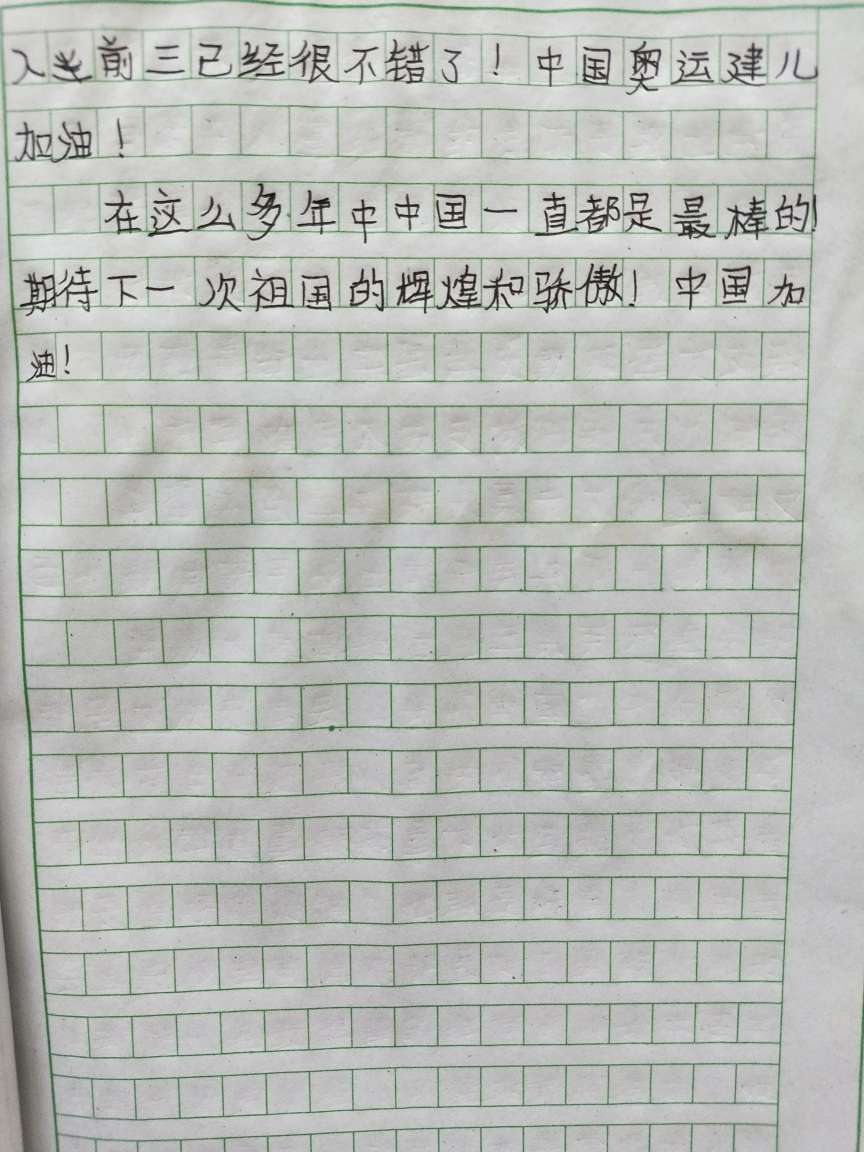 入前三已经很不错了！中国奥运建儿
加油！
在这么多年中中国一直都是最棒的！
期待下一次祖国的辉煌和骄傲！中国加
油！